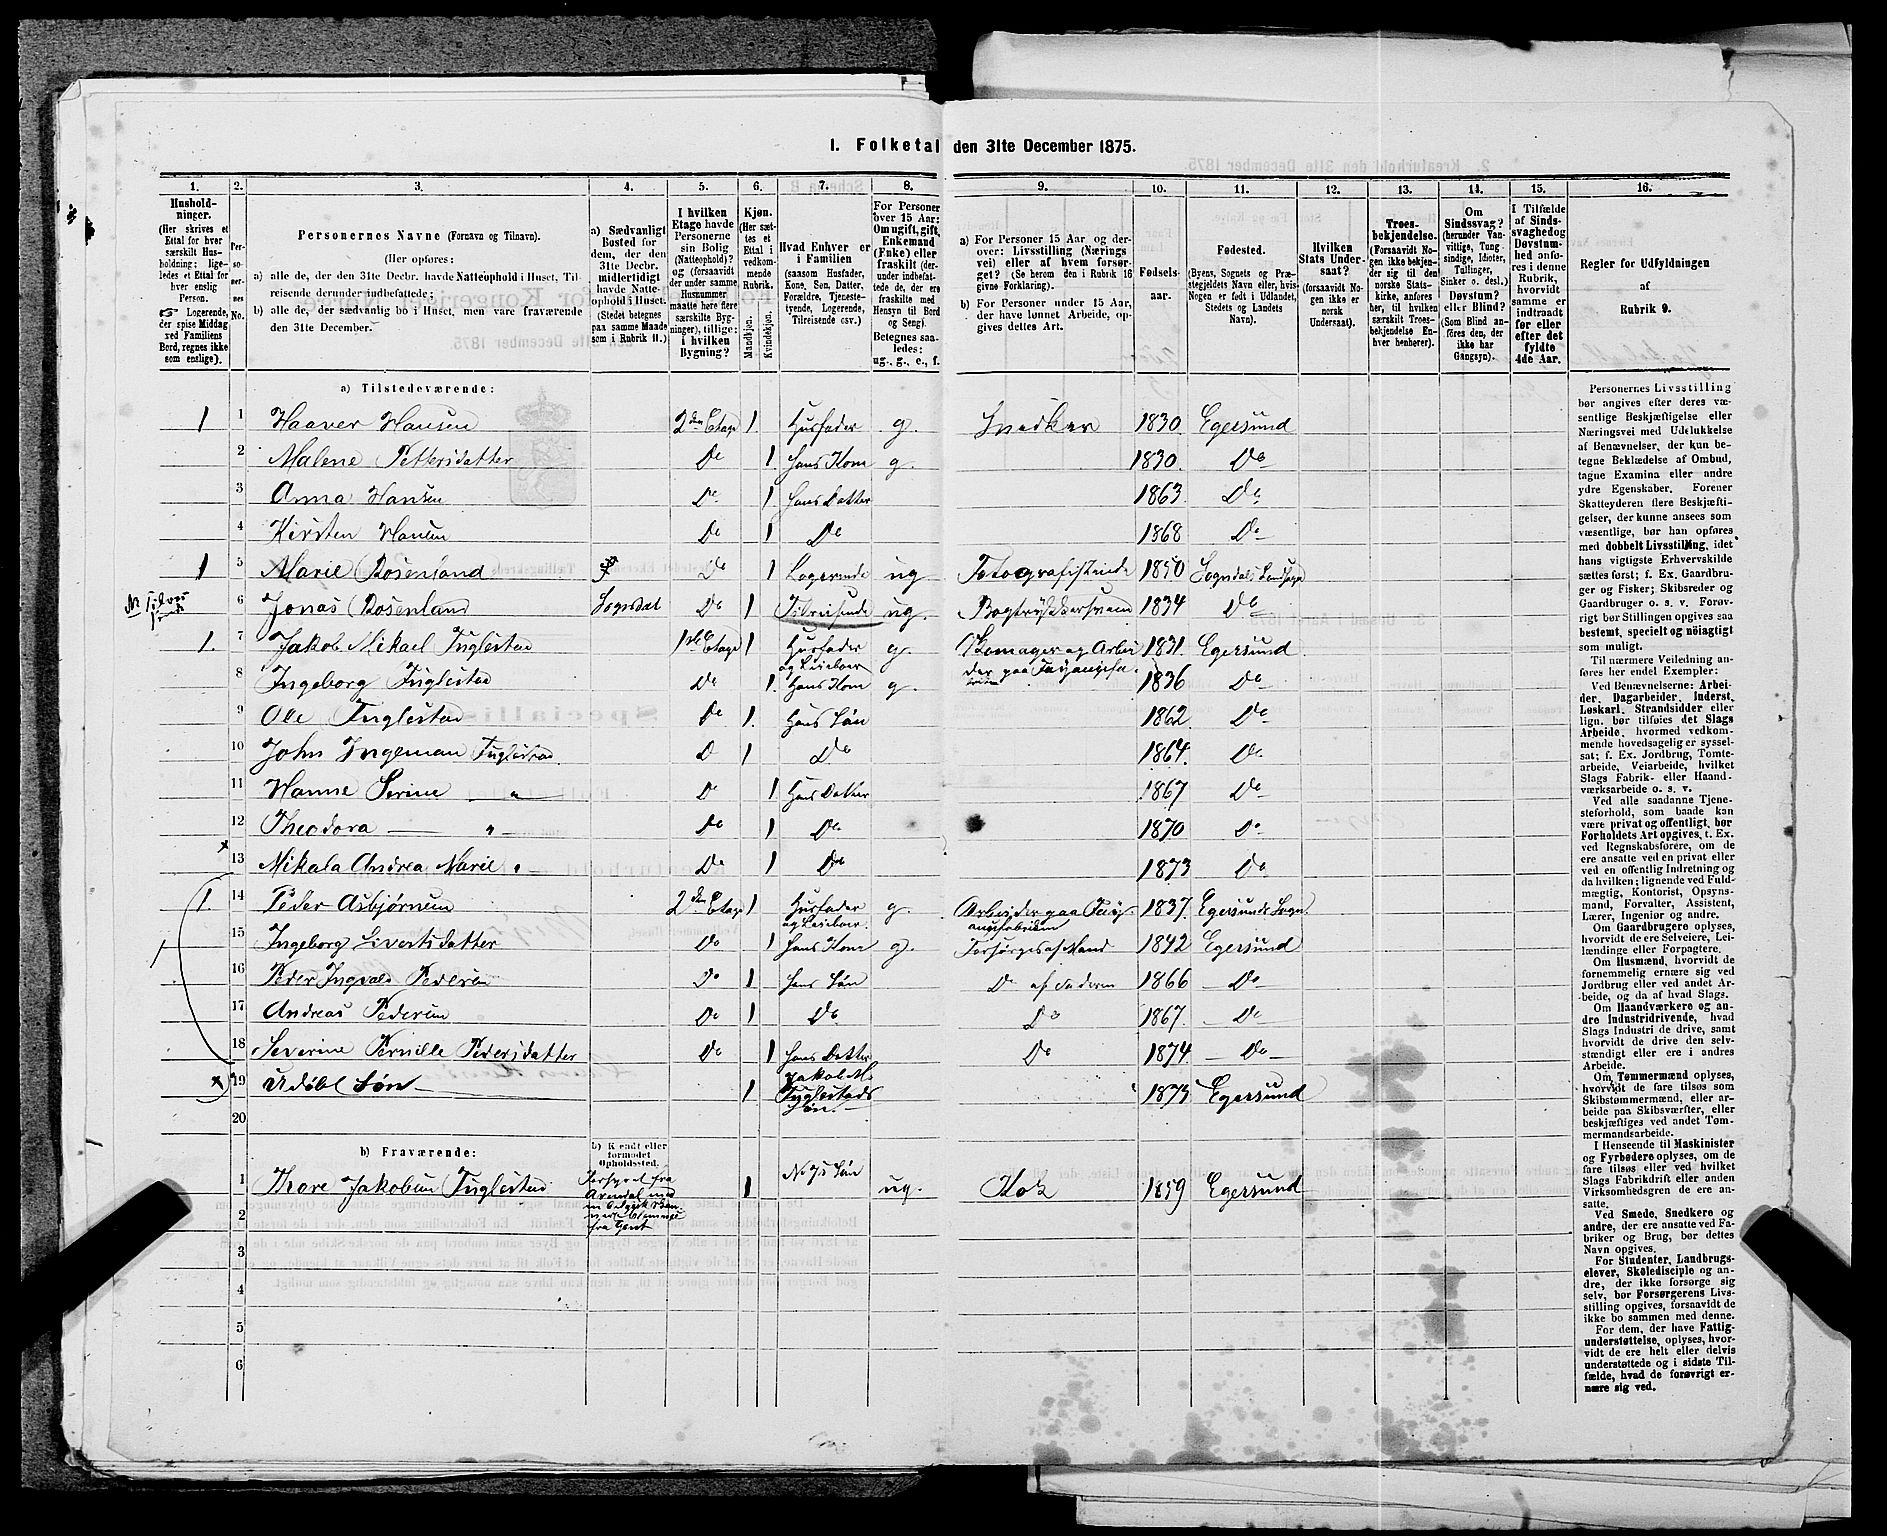 1. Folketal den 31te December 1875.
1.
2.
3.
4.
5.
6.
7.
8.
9.
10.
11.
12.
13.
14.
15.
16.
Hushold-
ninger.
(Her skrives et
Ettal for hver
særskilt Hus-
holdning; lige-
ledes et Ettal for
hver enslig
Person.
☞ Logerende,
der spise Middag
ved Familiens
Bord, regnes ikke
som enslige).
Per-
so-
ner-
nes
No.
Personernes Navne (Fornavn og Tilnavn).
(Her opføres:
a) alle de, der den 31te Decbr. havde Natteophold i Huset, Til-
reisende derunder indbefattede;
b) alle de, der sædvanlig bo i Huset, men vare fraværende
den 31te December.
a) Sædvanligt
Bosted for
dem, der den
31te Decbr.
midlertidigt
havde Natte-
ophold i Huset.
(Stedet betegnes
paa samme Maade
som i Rubrik 11.)
I hvilken
Etage havde
Personerne
sin Bolig
(Natteophold)?
og (forsaavidt
der under samme
Husnummer
maatte høre flere
særskilte Byg-
ninger), tillige:
i hvilken
Bygning?
Kjøn.
(Her sæt-
tes et
Ettal i
vedkom-
mende
Rubrik.
Mandkjøn.
Kvindekjøn.
Hvad Enhver er
i Familien
(saasom Husfader,
Kone, Søn, Datter,
Forældre, Tjeneste-
tyende, Logerende,
Tilreisende csv.)
For Personer
over 15 Aar:
Om ugift, gift,
Enkemand
(Enke) eller
fraskilt (der-
under indbefat-
tede de, der ere
fraskilte med
Hensyn til Bord
og Seng).
Betegnes saa-
ledes:
ug., g., e., f.
a) For Personer 15 Aar og der-
over: Livsstilling (Nærings
vei) eller af hvem forsør-
get? (Se herom den i Rubrik 16
givne Forklaring).
b) For Personer under 15 Aar,
der have lønnet Arbeide, op-
gives dettes Art.
Fødsels-
aar.
Fødested.
(Byens, Sognets og Præ-
stegjeldets Navn eller, hvis
Nogen er født i Udlandet,
Stedets og Landets
Navn).
Hvilken
Stats Under-
saat?
(forsaavidt No-
gen ikke er
norsk
Undersaat).
Troes-
bekjendelse.
(Forsaavidt No-
gen ikke bekjen-
der sig til den
norske Stats-
kirke, anføres
her, til hvilken
særskilt Troes-
bekjendelse En-
hver henhører).
Om
Sindssvag?
(herunder Van-
vittige, Tung-
sindige, Idioter,
Tullinger,
Sinker o. desl.)
Døvstum?
eller Blind?
(Som Blind an-
føres den, der
ikke har
Gangsyn).
I Tilfælde
af Sinds-
svaghed og
Døvstum-
hed anfø-
res i denne
Rubrik,
hvorvidt
samme er
indtraadt
før eller
efter det
fyldte
4de Aar.
Regler for Udfyldningen
af
Rubrik 9.
a) Tilstedeværende:
1 1 Haaver Hansen 2den Etage 1 Husfader g. Snedker 1830 Egersund
2 Malene Pettersdatter Do 1 hans Kone g 1830. Do
3 Anna Hansen Do 1 hans Datter 1863. Do
4 Kirsten Hansen Do 1 Do 1868 Do
1 5 Marie Rosenland Do 1 Logerende ug Fotografistinde 1850 Sogndals Landsogn
6 Jonas Rosenland Sogndal Do 1 Tilreisende ug. Bogtrykkersvend 1834 Do
1. 7 Jakob Mikael Fuglestad 1ste Etage 1 Husfader og Leieboer g. Skomager og Arbei 1831. Egersund
der paa Fayancefa
8 Ingeborg Fuglestad Do 1. Hans Kone g. 1836 Do
9 Ole Fuglestad Do 1. Hans Søn 1862. Do
10 John Ingeman Fuglestad D 1 Do 1864. Do
11 Hanne Serine — " — Do 1 Hans Datter 1867 Do
12 Theodora — " — Do 1 Do 1870 Do
13 Mikala Andrea Marie " — Do 1 Do 1873 Do
1. 14 Peder Asbjørnsen 2den Etage 1 Husfader og Leieboer. g. Arbeider paa Fay- 1837. Egersunds Sogn.
ancefabriken
15 Ingeborg Sivertsdatter Do 1 hans Kone g. Forsørges af Mand 1842 Egersund
16 Peder Ingvald Pedersen Do 1 hans Søn Do af Faderen 1866 Do
17 Andreas Pedersen Do 1 Do Do 1867. Do
18 Severine Pernille Pedersdatter Do 1 hans Datter Do 1874. Do
19 Udøbt Søn 1 Jakob M. Fuglestads Søn. 1875 Egersund
20
b) Fraværende:
b) Kjendt eller
formodet
Opholdssted.
1 Thore Jakobsen Fuglestad 1 No 7s Søn ug. Kok 1859 Egersund
Forsynet fra
Arendal med
fra Gent
2
3
4
5
6
Personernes Livsstilling
bør angives efter deres væ-
sentlige Beskjæftigelse eller
Næringsvei med Udelukkelse
af Benævnelser, der kun be-
tegne Beklædelse af Ombud,
tagne Examina eller andre
ydre Egenskaber. Forener
Skatteyderen flere Beskjæfti-
gelser, der kunne ansees som
væsentlige, bør han opføres
med dobbelt Livsstilling, idet
hans vigtigste Erhvervskilde
sættes først; f. Ex. Gaardbru-
ger og Fisker; Skibsreder og
Gaardbruger o. s. v. Forøv-
rigt bør Stillingen opgives saa
bestemt, specielt og nöiagtigt
som muligt.
Til nærmere Veiledning an-
føres her endel Exempler:
Ved Benævnelserne: Arbei-
der, Dagarbeider, Inderst,
Løskarl, Strandsidder eller
lign. bør tilføies det Slags
Arbeide, hvormed vedkom-
mende hovedsagelig er syssel-
sat; f. Ex. Jordbrug, Tomte-
arbeide, Veiarbeide, hvilket
Slags Fabrik- eller Haand-
værksarbeide o. s. v.
Ved alle saadanne Tjene-
steforhold, som baade kan
være privat og offentligt, bør
Forholdets Art opgives, t. Ex.
ved Regnskabsførere, om de
ere ansatte ved en privat eller
ved en offentlig Indretning og
da hvilken; lignende ved Fuld-
mægtig, Kontorist, Opsyns-
mand, Forvalter, Assistent,
Lærer, Ingeniør og andre.
Om Gaardbrugere oplyses,
hvorvidt de ere Selveiere, Lei-
lændinge eller Forpagtere.
Om Husmænd, hvorvidt de
fornemmelig ernære sig ved
Jordbrug eller ved andet Ar-
beide, og da af hvad Slags.
Om Haandværkere og an-
dre Industridrivende, hvad
Slags Industri de drive, samt
hvorvidt de drive den selv-
stændigt eller ere i andres
Arbeide.
Om Tømmermænd oplyses,
hvorvidt de fare tilsøs som
Skibstømmermænd, eller ar-
beide paa Skibsværfter, eller
beskjæftiges ved andet Tøm-
mermandsarbeide.
I Henseende til Maskinister
og Fyrbødere oplyses, om de
fare tilsøs eller ved hvilket
Slags Fabrikdrift eller anden
Virksomhedsgren de ere an-
satte.
Ved Smede, Snedkere og
andre, der ere ansatte ved Fa-
briker og Brug, bør dettes
Navn opgives.
For Studenter, Landbrugs-
elever, Skoledisciple og an-
dre, der ikke forsørge sig
selv, bør Forsørgerens Livs-
stilling opgives, forsaavidt de
ikke bo sammen med denne.
For dem, der have Fattig-
understøttelse, oplyses, hvor-
vidt de ere helt eller delvis
understøttede og i sidste Til-
fælde, hvad de forøvrigt er-
nære sig ved.